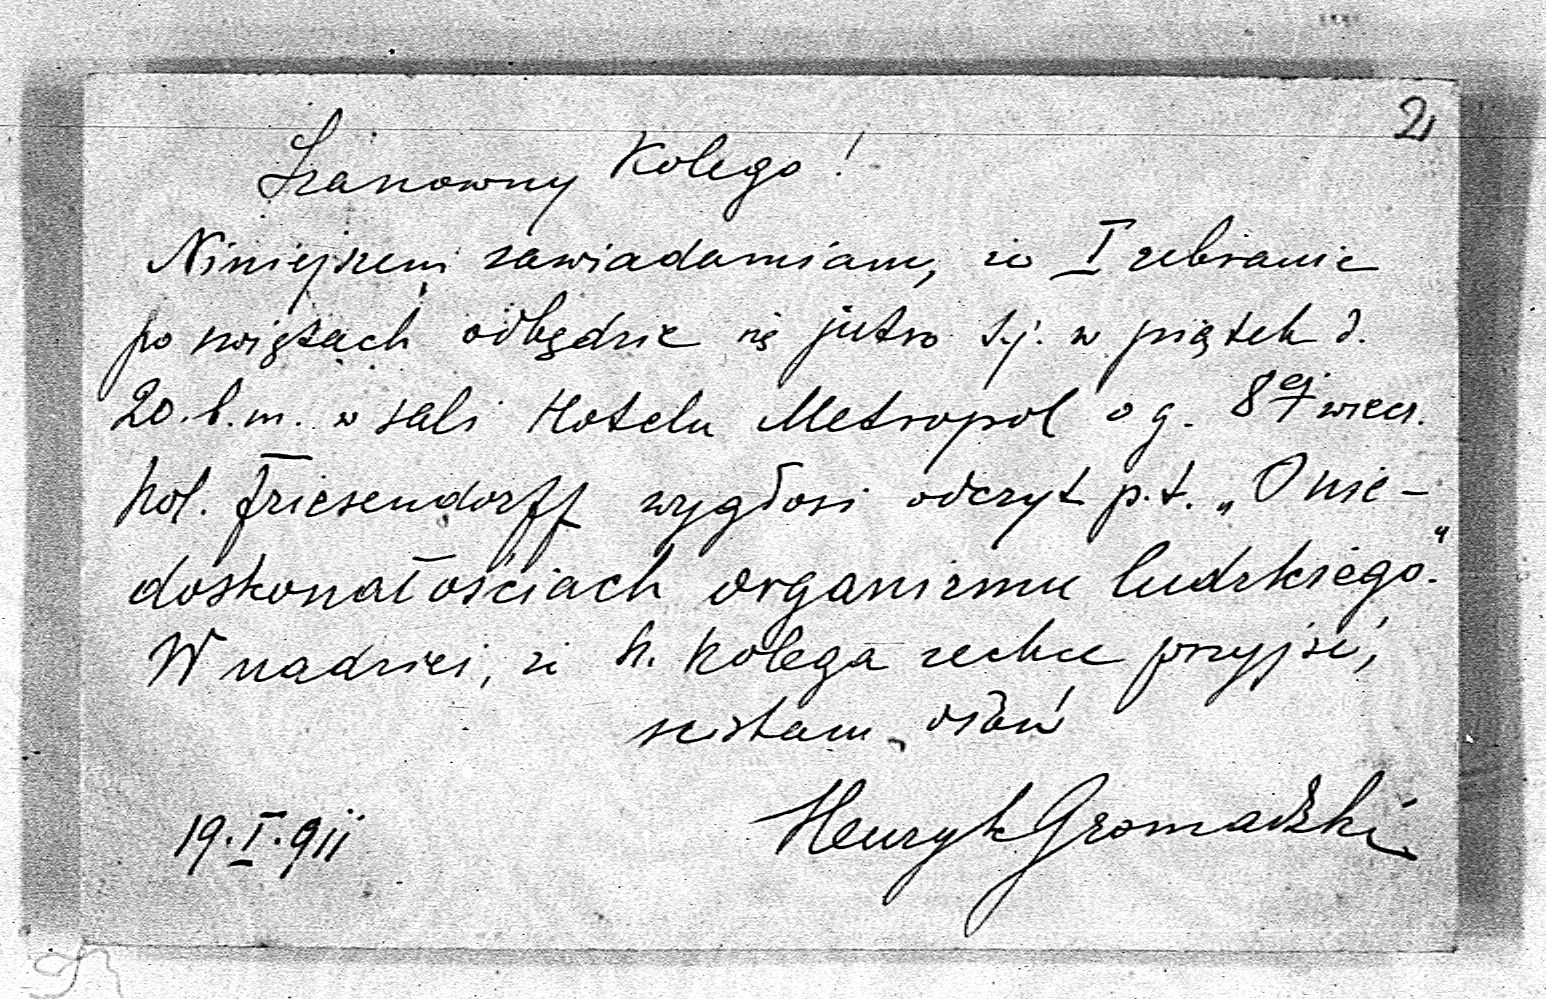 2
Szanowny Kolego!
Niniejszem zawiadamiam, że I zebranie
po świętach odbędzie się jutro t.j. w piątek d.
20. b. m. w sali Hotelu Metropol o g. 8ej wiecz.
Kol. Friesendorff wygłosi odczyt p.t. „O nie-
doskonałościach organizmu ludzkiego."
W nadziei, że k. Kolega zechce przyjść,
zostaję
19.I.911 Henryk Gromadzki